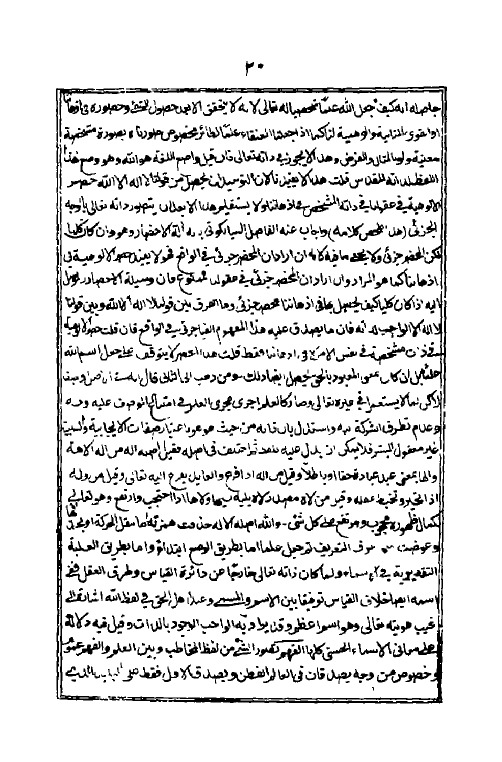 ٢٠
حاصله انه كيف جعل الله علما لشخصه تعالى لانه لا يتحقق الا بعد حصول الشخص وحضوره في
او القوى المثالية والوهمية لها كما اذا جعلنا العنقاء علما لطائر مخصوص بصورة متشخصة
معينة ولو بالمثال والفرض وهذا لا يجوز في ذاته تعالى فان قيل واضع اللغة هو الله وهو وضع هذا
اللفظ لذاته المقدس قلت هذا لا يفيد لان التوحيد ان يحصل من قولنا لا اله الا الله حصر
الالوهية في عقولنا في ذاته المشخص في اذهاننا ولا يستقيم هذا الا بعد ان يتصور ذاته تعالى بالوجه
الجزئي (هذا ملخص كلامه) واجاب عنه الفاضل السيالكوتي بان آلة الاحضار وهو وان كان كليا
لكن المحضر جزئي ولا يخفى ما فيه لانه ان اراد ان المحضر جزئي في الواقع فهو لا يفيد حصر الالوهية في
اذهاننا كما هو المراد وان اراد ان المحضر جزئي في عقولنا فممنوع فان وسيلة الاحضار
اليه اذا كان كليا كيف يحصل بها في اذهاننا محضر جزئي وما الفرق بين قولنا لا اله الا الله وبين قولنا
لا اله الا الواجب لذاته فان ما يصدق عليه هذا المفهوم ايضا جزئي في الواقع فان قلت حصر الالوهية
في ذات مشخصة في نفس الامر في اذهاننا فقط قلت هذا الحصر لا يتوقف على جعل اسم الله
علما بل ان كان بمعنى المعبود بالحق يحصل ايضا ذلك ومن ذهب الى الثاني قال وصفا
لكن لما لا يستعمل في غيره تعالى وصار كالعلم اجري مجرى العلم في امتناع الوصف عليه وبه
وعدم تطرق الشركة فيه واستدل بان ذاته من حيث هو بلا اعتبار صفات الايجابية والسلبية
غير معقول للبشر فلا يمكن ان يدل عليه بلفظ ثم اختلف في اصله فقيل اصله اله من اله الاهة
والها بمعنى عبد عبادة حقا او باطلا وقيل من اله اذا فزع والعابد يفزع اليه تعالى وقيل من وله
اذا تحير وتخبط عقله وقيل من لاه مصدر لاه يليه ليها ولاها اذا احتجب وارتفع وهو تعالى
لكمال ظهوره محجوب ومرتفع على كل شئ والله اصله الاله حذفت همزته اما بنقل الحركة او بحذفها
وعوضت منه حرف التعريف ثم جعل علما اما بطريق الوضع ابتداء واما بطريق الغلبة
التقديرية في الاسماء ولما كان ذاته تعالى خارجا عن دائرة القياس وطرق العقل ففي
اسمه ايضا خلاف القياس توفيقا بين الاسم والمسمى وعند اهل الحق في لفظ الله اشارة الى
غيب هويته تعالى وهو اسم اعظم وقد يراد به الواجب الوجود بالذات وقيل فيه دلالة
على معاني الاسماء الحسنى كلها الفهم تصور الشئ من لفظ المخاطب وبين العلم والفهم عموم
وخصوص من وجه يصدقان في العالم الفطن ويصدق الاول فقط على